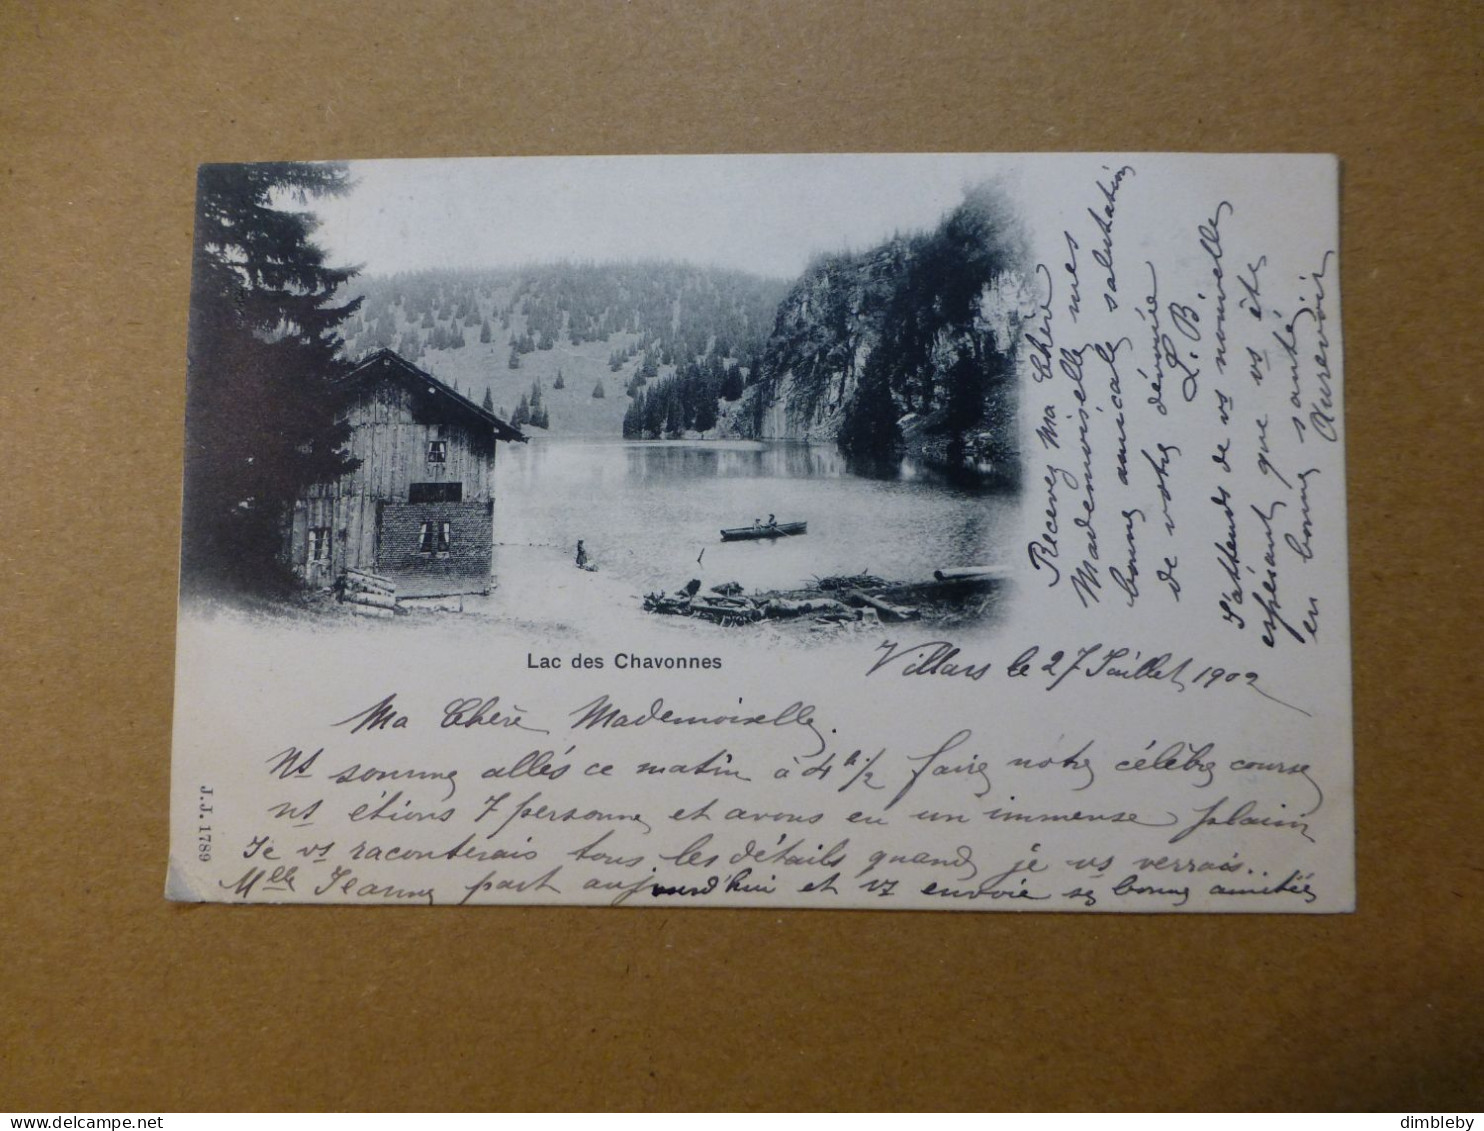 Lac des Chavonnes
Villars le 27 Juillet 1902
Ma Chère Mademoiselle
Ns somme allés ce matin à 4 h. 1/2 faire notre célèbre course
ns étions 7 personne et avons eu un immense plaisir
Je vs raconterais tous les détails quand je vs verrais..
Mlle Jeanne part aujourd'hui et vs envoie se bonne amitiés
Recevez Ma Chère
Mademoiselle mes
bonne amicale salutation
de votre dévouée
L. B.
J'attends de vs nouvelle
espérant que vs ête
en bonne santé
Aurevoir
J.J. 1789
delcampe.net
dimbleby